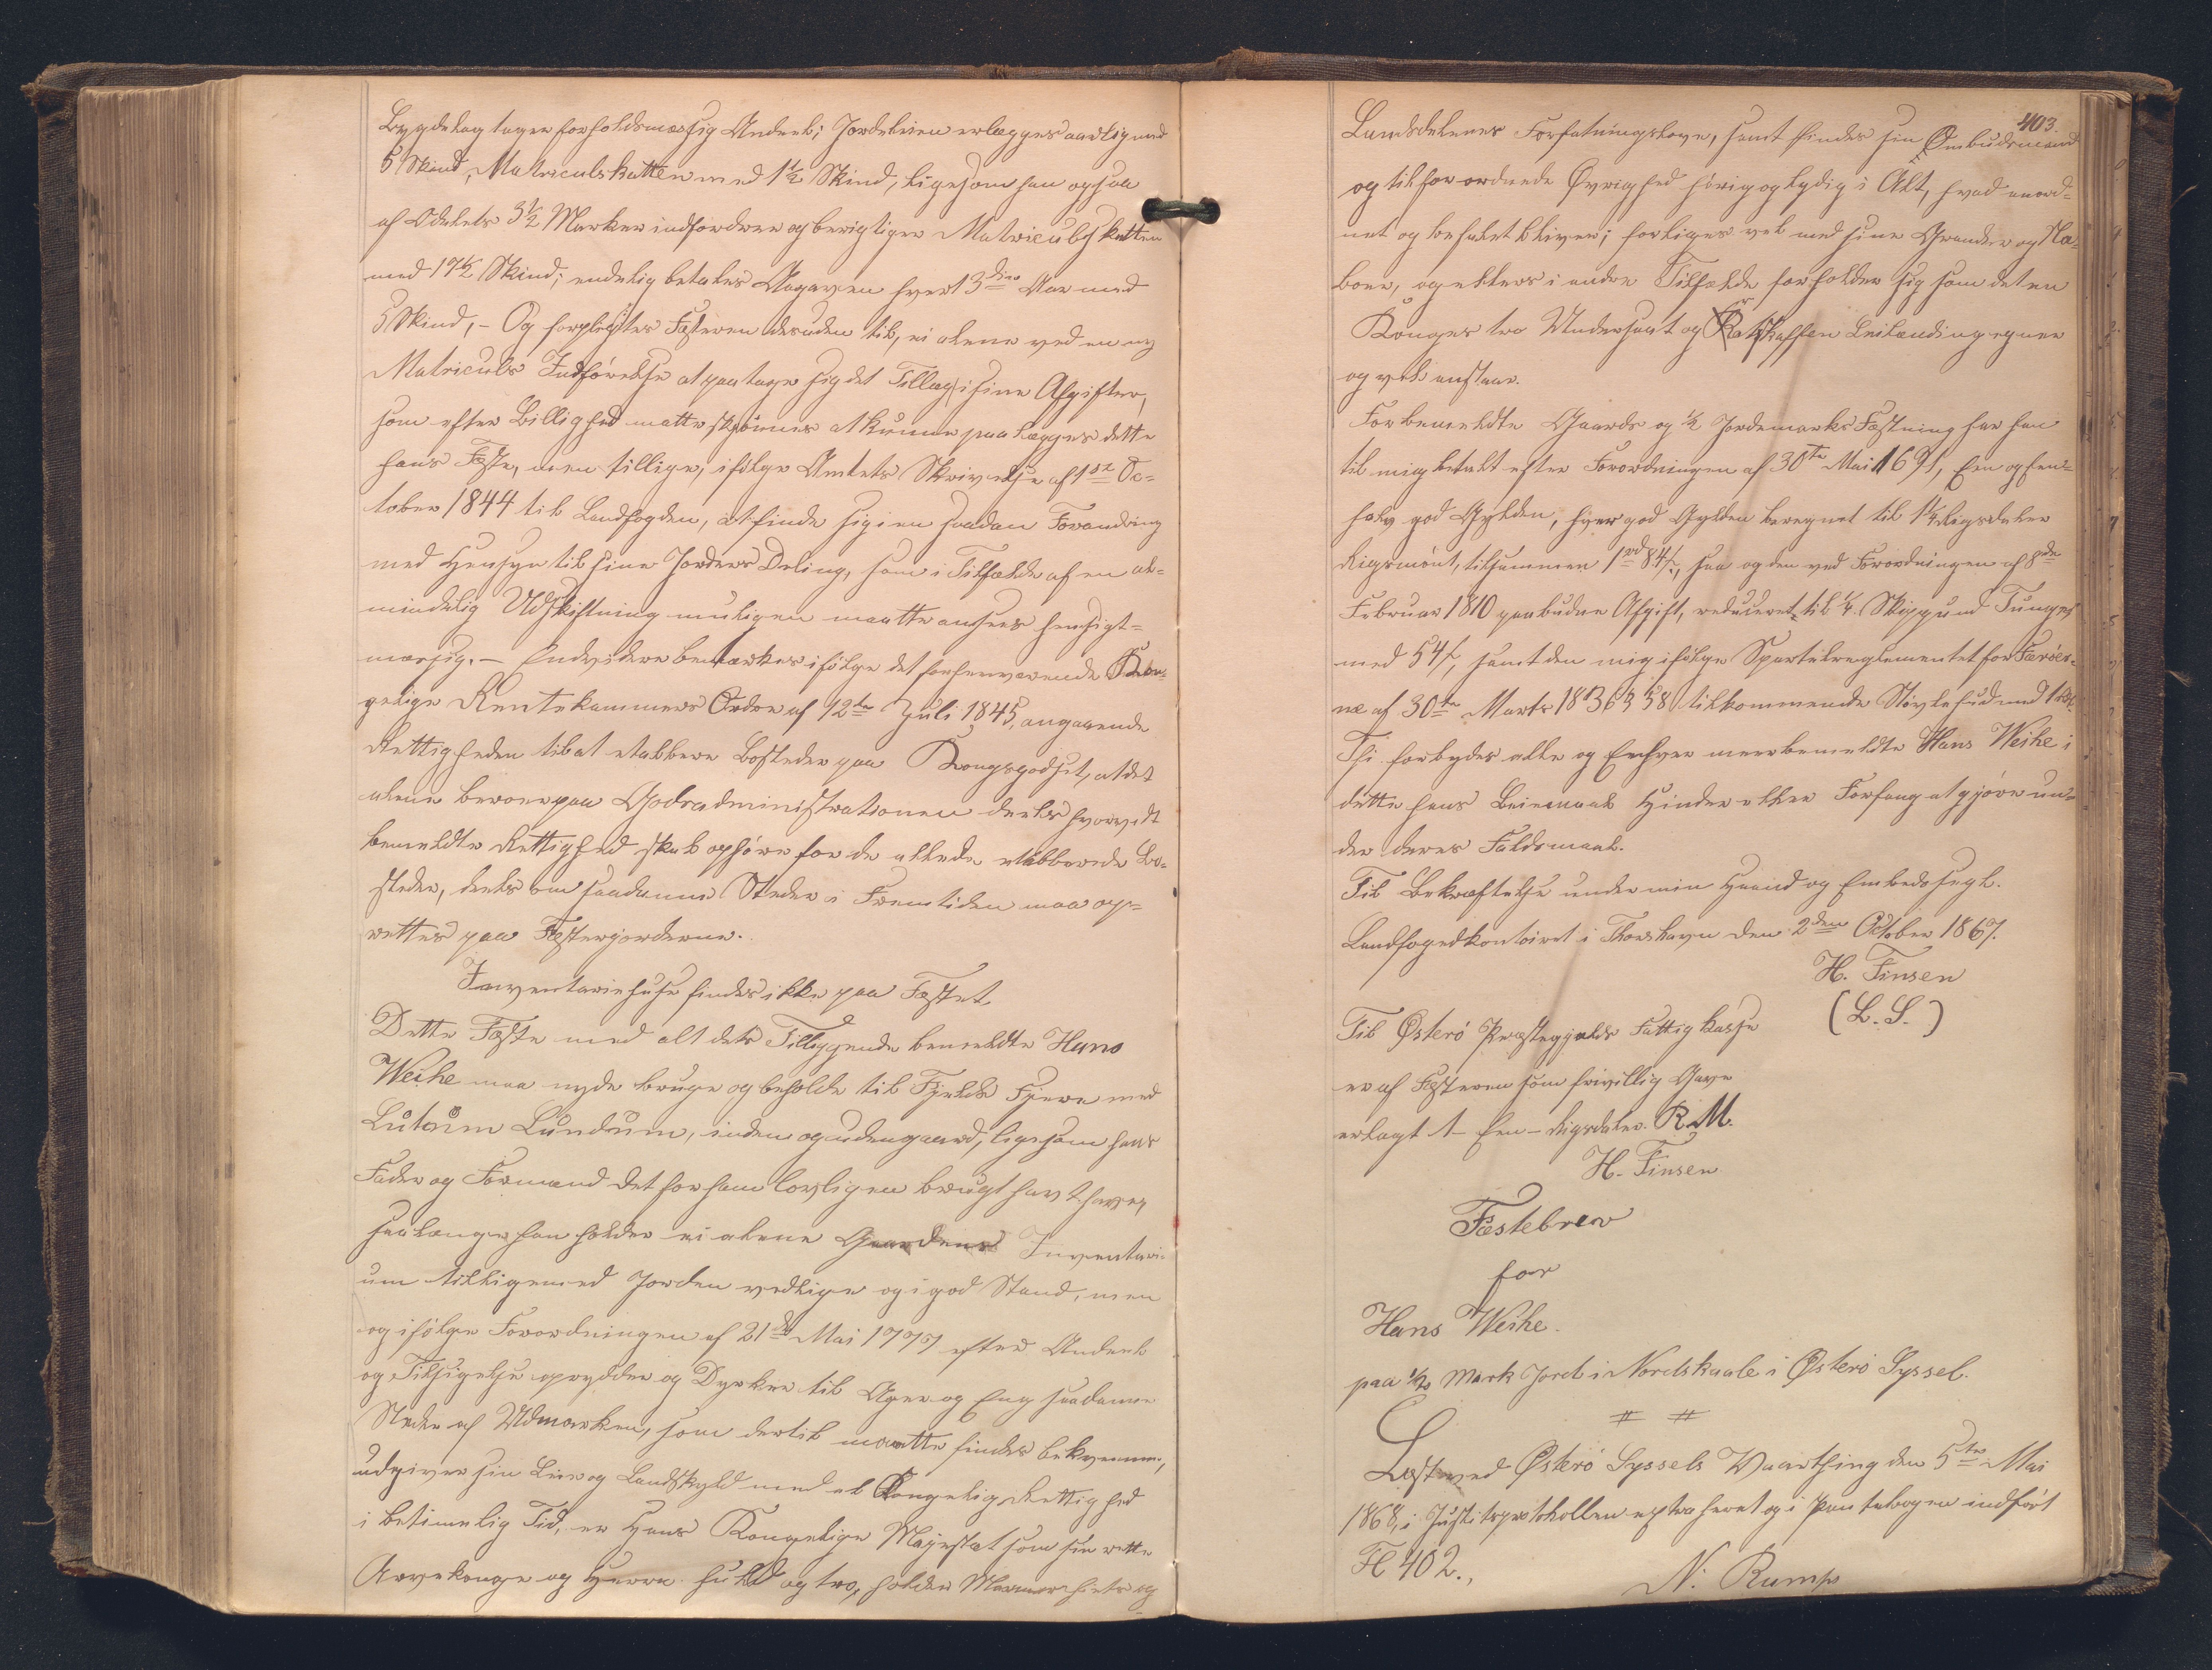 Bygdelag tager forholdsmæssig Andeel; Jordeleien erlægges aarlig med
5 Skind, Matriculskatten med 1½ Skind, ligesom han ogsaa
af Odelets 3½ Marker indfordrer og berigtiger Matriculskatten
med 17½ Skind; endelig betales Aagaven hvert 3die Aar med
5 Skind, - Og forpligtes Fæsteren desuden til, ei alene ved en ny
Matriculs Indførelse at paatage sig det Tillæg i sine Afgifter,
som efter Billighed matte skjønnes at kunne paalægges dette
hans Fæste, men tillige, ifølge Amtets Skrivelse af 1ste Oc=
tober 1844 til Landfogden, at finde sig i en saadan Forandring
med Hensyn til sine Jorders Deling, som i Tilfælde af en al=
mindelig Udskiftning muligen maatte ansees hensigt=
mæssig. - Endvidere bemærkes ifølge det forhenværende Kon=
gelige Rentekammers Ordre af 12te Juli 1845, angaaende
Rettigheden til at etablere Bosteder paa Kongsgodset, at det
alene beroer paa Godsadministrationen deels hvorvidt
bemeldte Rettighed skal ophøre for de allede etablerede Bo=
steder, deels om saadanne Steder i Fremtiden maa op=
rettes paa Fæstergjorderne.
Inventariehuse findes ikke paa Fæstet
Dette Fæste med alt dets Tilliggende bemeldte Hans
Weihe maa nyde bruge og beholde til Fjelds Fjære med
Lutum Lundum, inden og udengaard, ligesom hans
Fader og Formand det for ham lovligen brugt havt haver,
saalænge han holder ei alene Gaardens Inventari=
um tilligemed Jorden vedlige og i god Stand, men
og ifølge Forordningen af 21de Mai 1777 efter Andeel
og Tilsigelse oprydder og Dyrker til Ager og Eng saadanne
Steder af Udmarken, som dertil maatte findes bekvemme,
udgiver sin Leie og Landskyld med al Kongelig Rettighed
i betimelig Tid, er Hans Kongelige Majestæt som sin rette
Arvekonge og Herre huld og tro, holder og
403.
Landsdelenes Forfatningslove, samt findes sin Ombudsmand
og tilforordnede Øvrighed hørig og lydig i Alt, hvad anord=
net og befalet bliver; forliges vel med sine Grander og Na=
boer, og ellers i andre Tilfælde forholder sig som det en
Konges tro Undersaat og Retskaffen Leilænding egner
og vel anstaar.
Forbemeldte Gaards og ½ Jordemarks Fæstning har han
til mig betalt efter Forordningen af 30te Mai 1691, Een og een=
halv god Gylden, hver god Gylden beregnet til 1¼ Rigsdaler
Rigsmønt, tilsammen 1rd 84s, saa og den ved Forordningen af 8de
Februar 1810 paabudne Afgift, reduceret til ¼ Skippund Tunges
med 54s, samt den mig ifølge Sportelreglementet for Færøer=
ne af 30te Marts 1836 § 58 tilkommende Støvlehud med 1 Rd.
Thi forbydes alle og Enhver meerbemeldte Hans Weihe i
dette hans Leiemaal Hinder eller Forfang at gjøre un=
der deres Faldsmaal.
Til Bekræftelse under min Haand og Embedssegl.
Landfogedkontoiret i Thorshavn den 2den October 1867.
H. Finsen
(L. S.)
Til Østerø Præstegjælds Fattigkasse
er af Fæsteren som frivillig Gave
erlagt 1 - Een - Rigsdaler R.M.
H. Finsen
Fæstebrev
for
Hans Weihe.
paa ½ Mark Jord i Nordskaale i Østerø Syssel.
Læst ved Østerø Syssels Vaarthing den 5te Mai
1868, i Justitsprotokollen extraheret og i Pantebogen indført
Fl 402.,
N. Rump